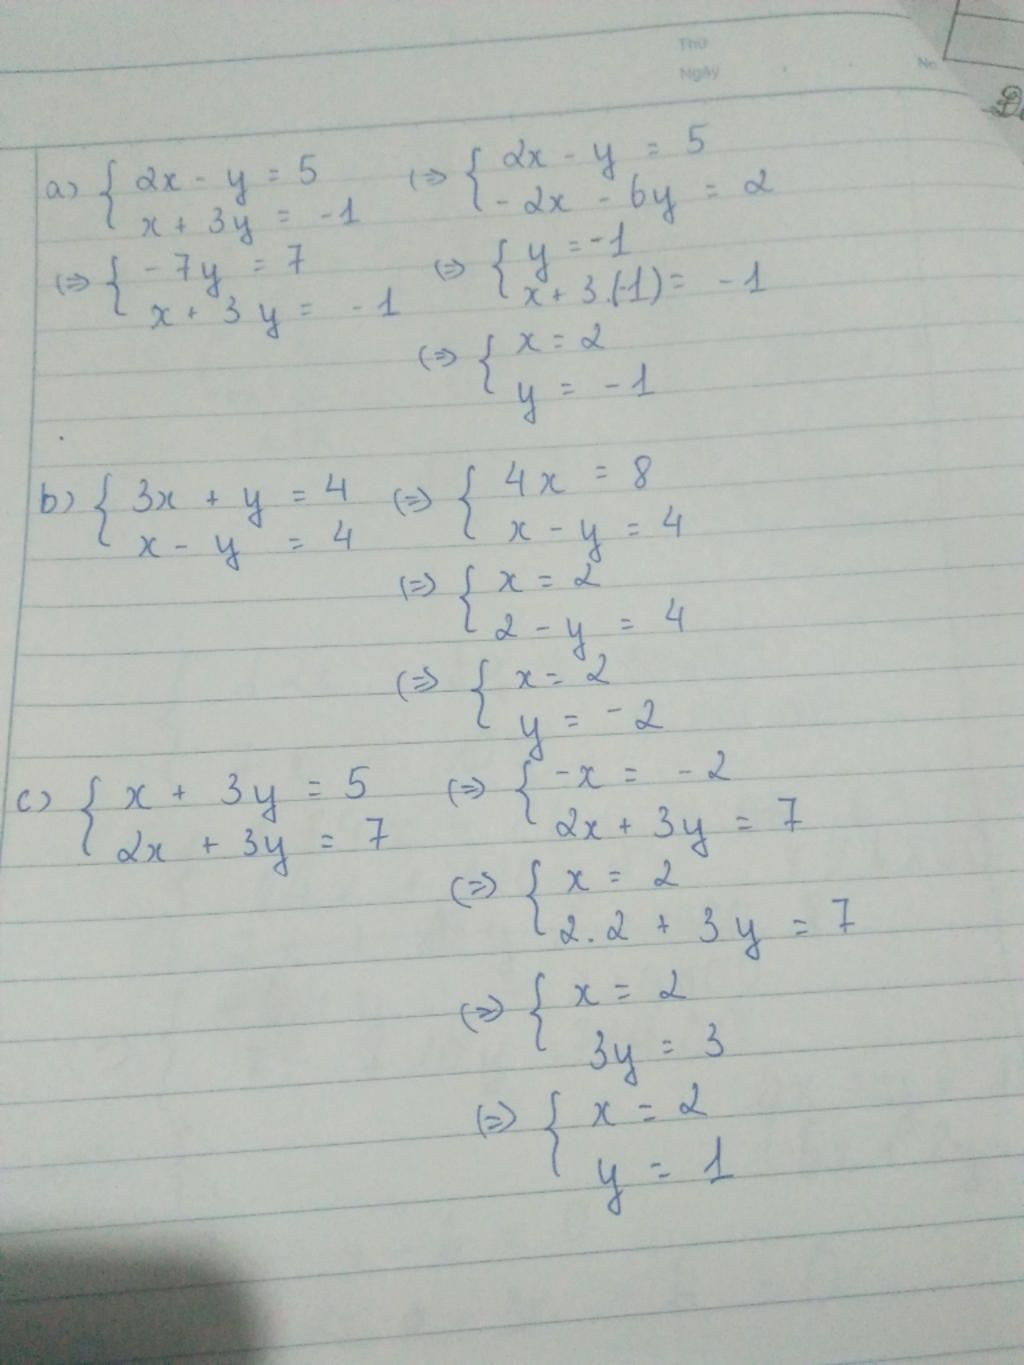 Thứ
Ngày No.
a) { 2x - y = 5 (=) { 2x - y = 5
x + 3y = -1 - 2x - 6y = 2
(=) { - 7y = 7 (=) { y = -1
x + 3y = -1 x + 3.(-1) = -1
(=) { x = 2
y = -1
b) { 3x + y = 4 (=) { 4x = 8
x - y = 4 x - y = 4
(=) { x = 2
2 - y = 4
(=) { x = 2
y = -2
c) { x + 3y = 5 (=) { -x = -2
2x + 3y = 7 2x + 3y = 7
(=) { x = 2
2.2 + 3y = 7
(=) { x = 2
3y = 3
(=) { x = 2
y = 1